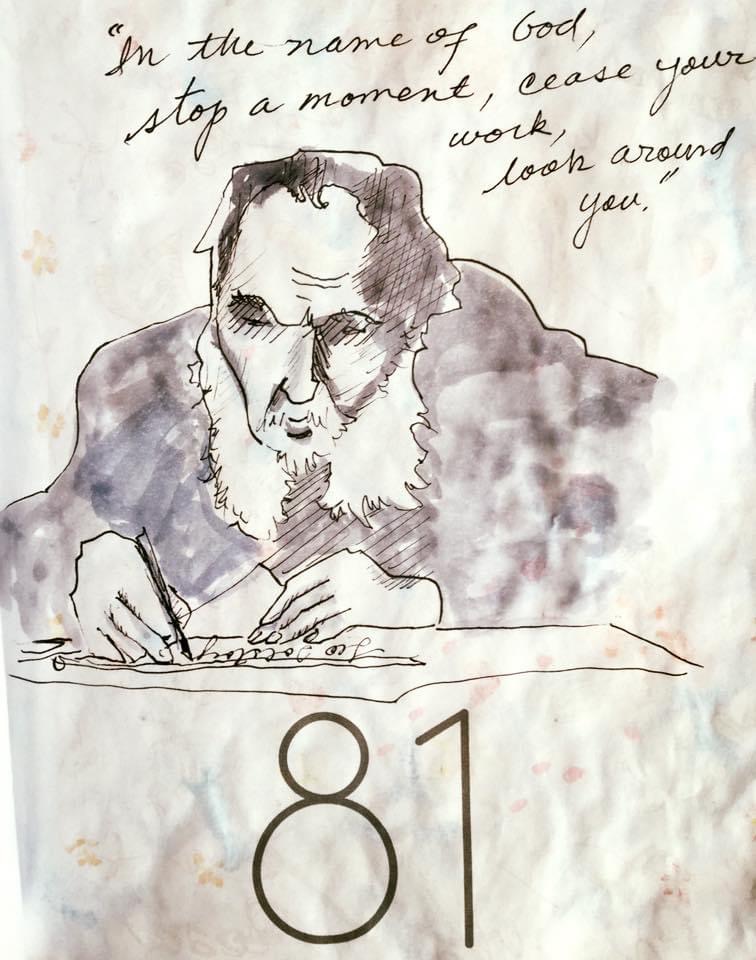 "In the name of God,
stop a moment, cease your
work,
look around
you."
Leo Tolstoy
81